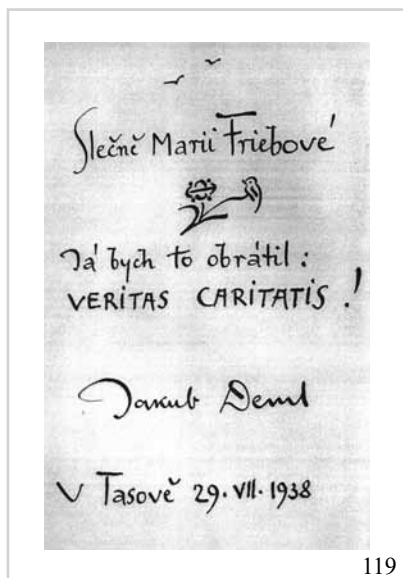 Slečně Marii Friebové
Já bych to obrátil :
VERITAS CARITATIS !
Jakub Deml
V Tasově 29. VII. 1938
119